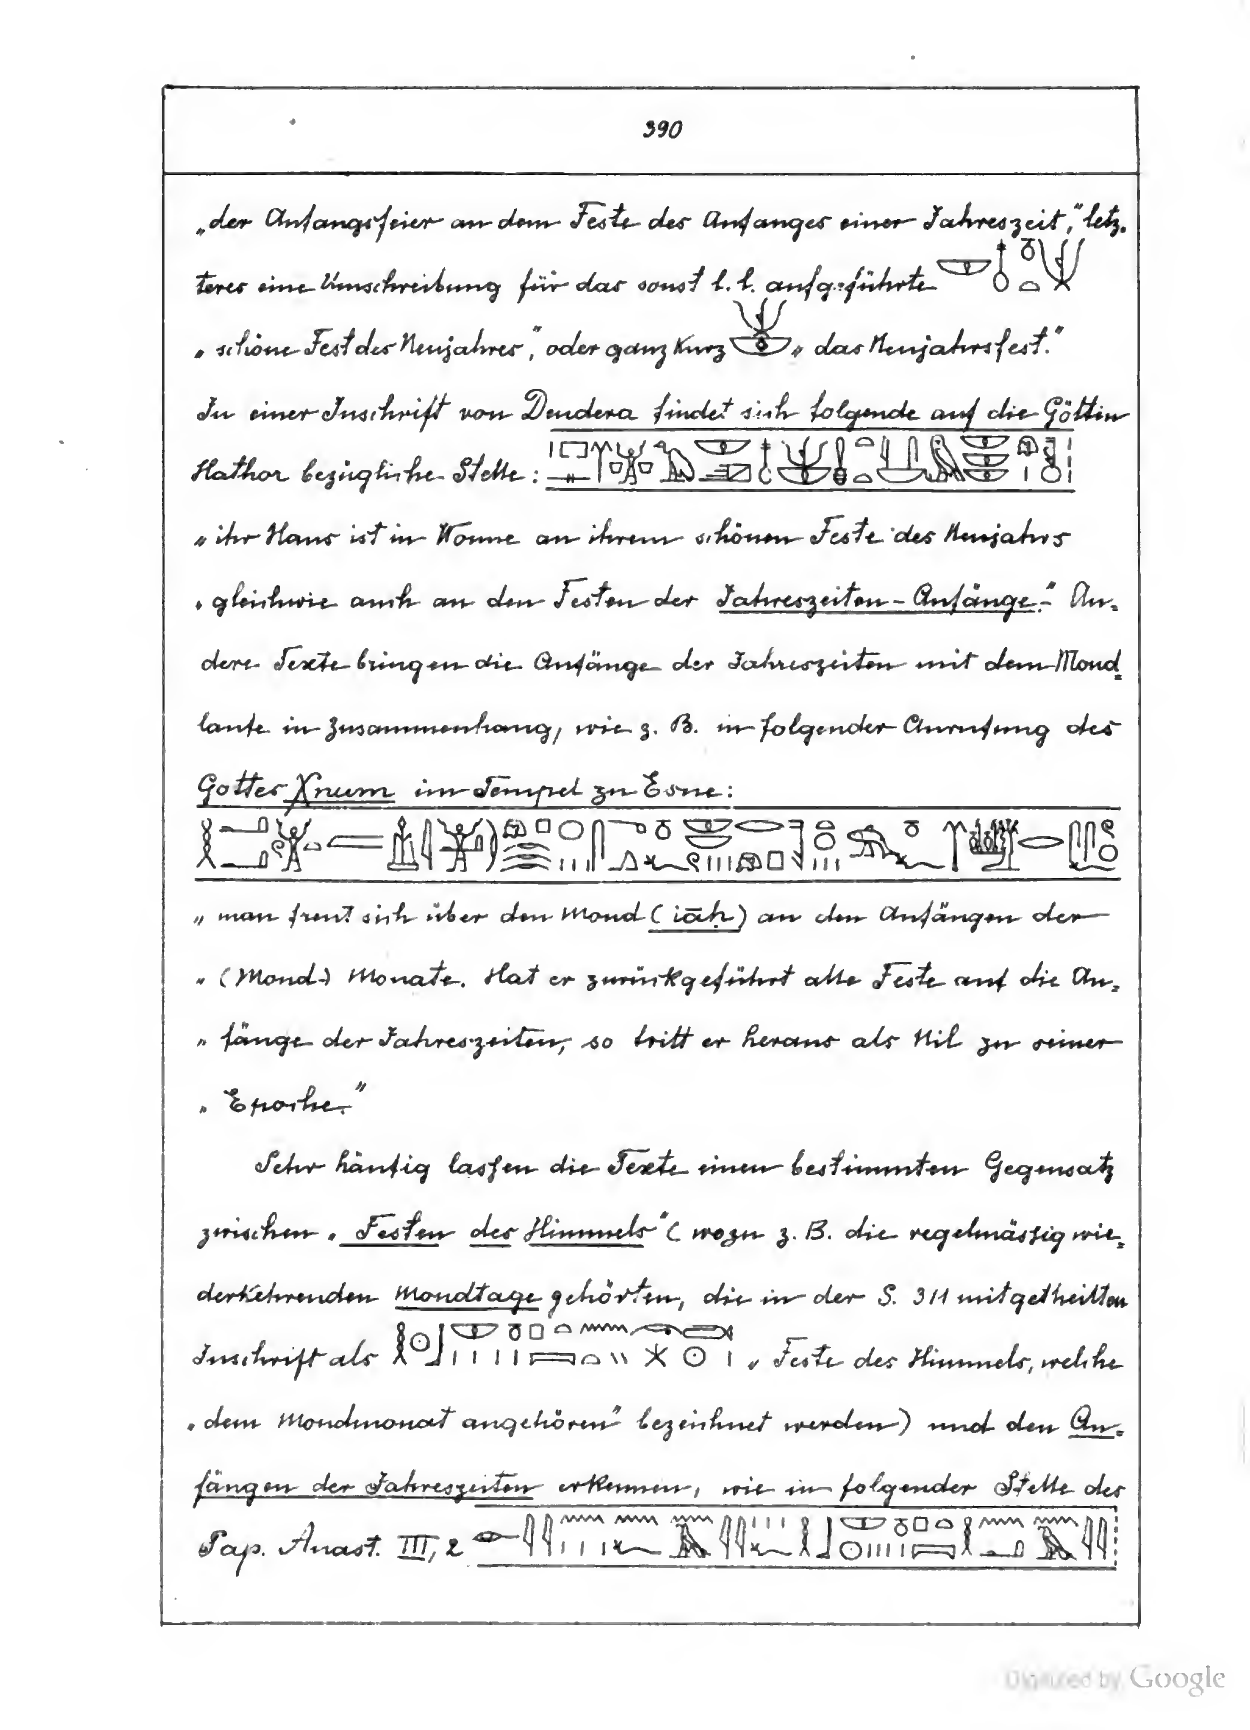 390
„der Anfangsfeier an dem Feste des Anfanges einer Jahreszeit,“ letz-
teres eine Umschreibung für das sonst l. l. aufgeführte
„schöne Fest des Neujahres“, oder ganz kurz „das Neujahrsfest.“
In einer Inschrift von Dendera findet sich folgende auf die Göttin
Hathor bezügliche Stelle:
„ihr Haus ist in Wonne an ihrem schönen Feste des Neujahrs
„gleichwie auch an den Festen der Jahreszeiten-Anfänge.“ An-
dere Texte bringen die Anfänge der Jahreszeiten mit dem Mond-
laufe in Zusammenhang, wie z. B. in folgender Anrufung des
Gottes Xnum im Tempel zu Esne:
„man freut sich über den Mond (iāḥ) an den Anfängen der
„(Mond-) Monate. Hat er zurückgeführt alle Feste auf die An-
„fänge der Jahreszeiten, so tritt er heraus als Nil zu seiner
„Epoche.“
Sehr häufig lassen die Texte einen bestimmten Gegensatz
zwischen „Festen des Himmels“ (wozu z. B. die regelmässig wie-
derkehrenden Mondtage gehörten, die in der S. 311 mitgetheilten
Inschrift als „Feste des Himmels, welche
„dem Mondmonat angehören“ bezeichnet werden) und den An-
fängen der Jahreszeiten erkennen, wie in folgender Stelle des
Pap. Anast. III, 2
Digitized by Google